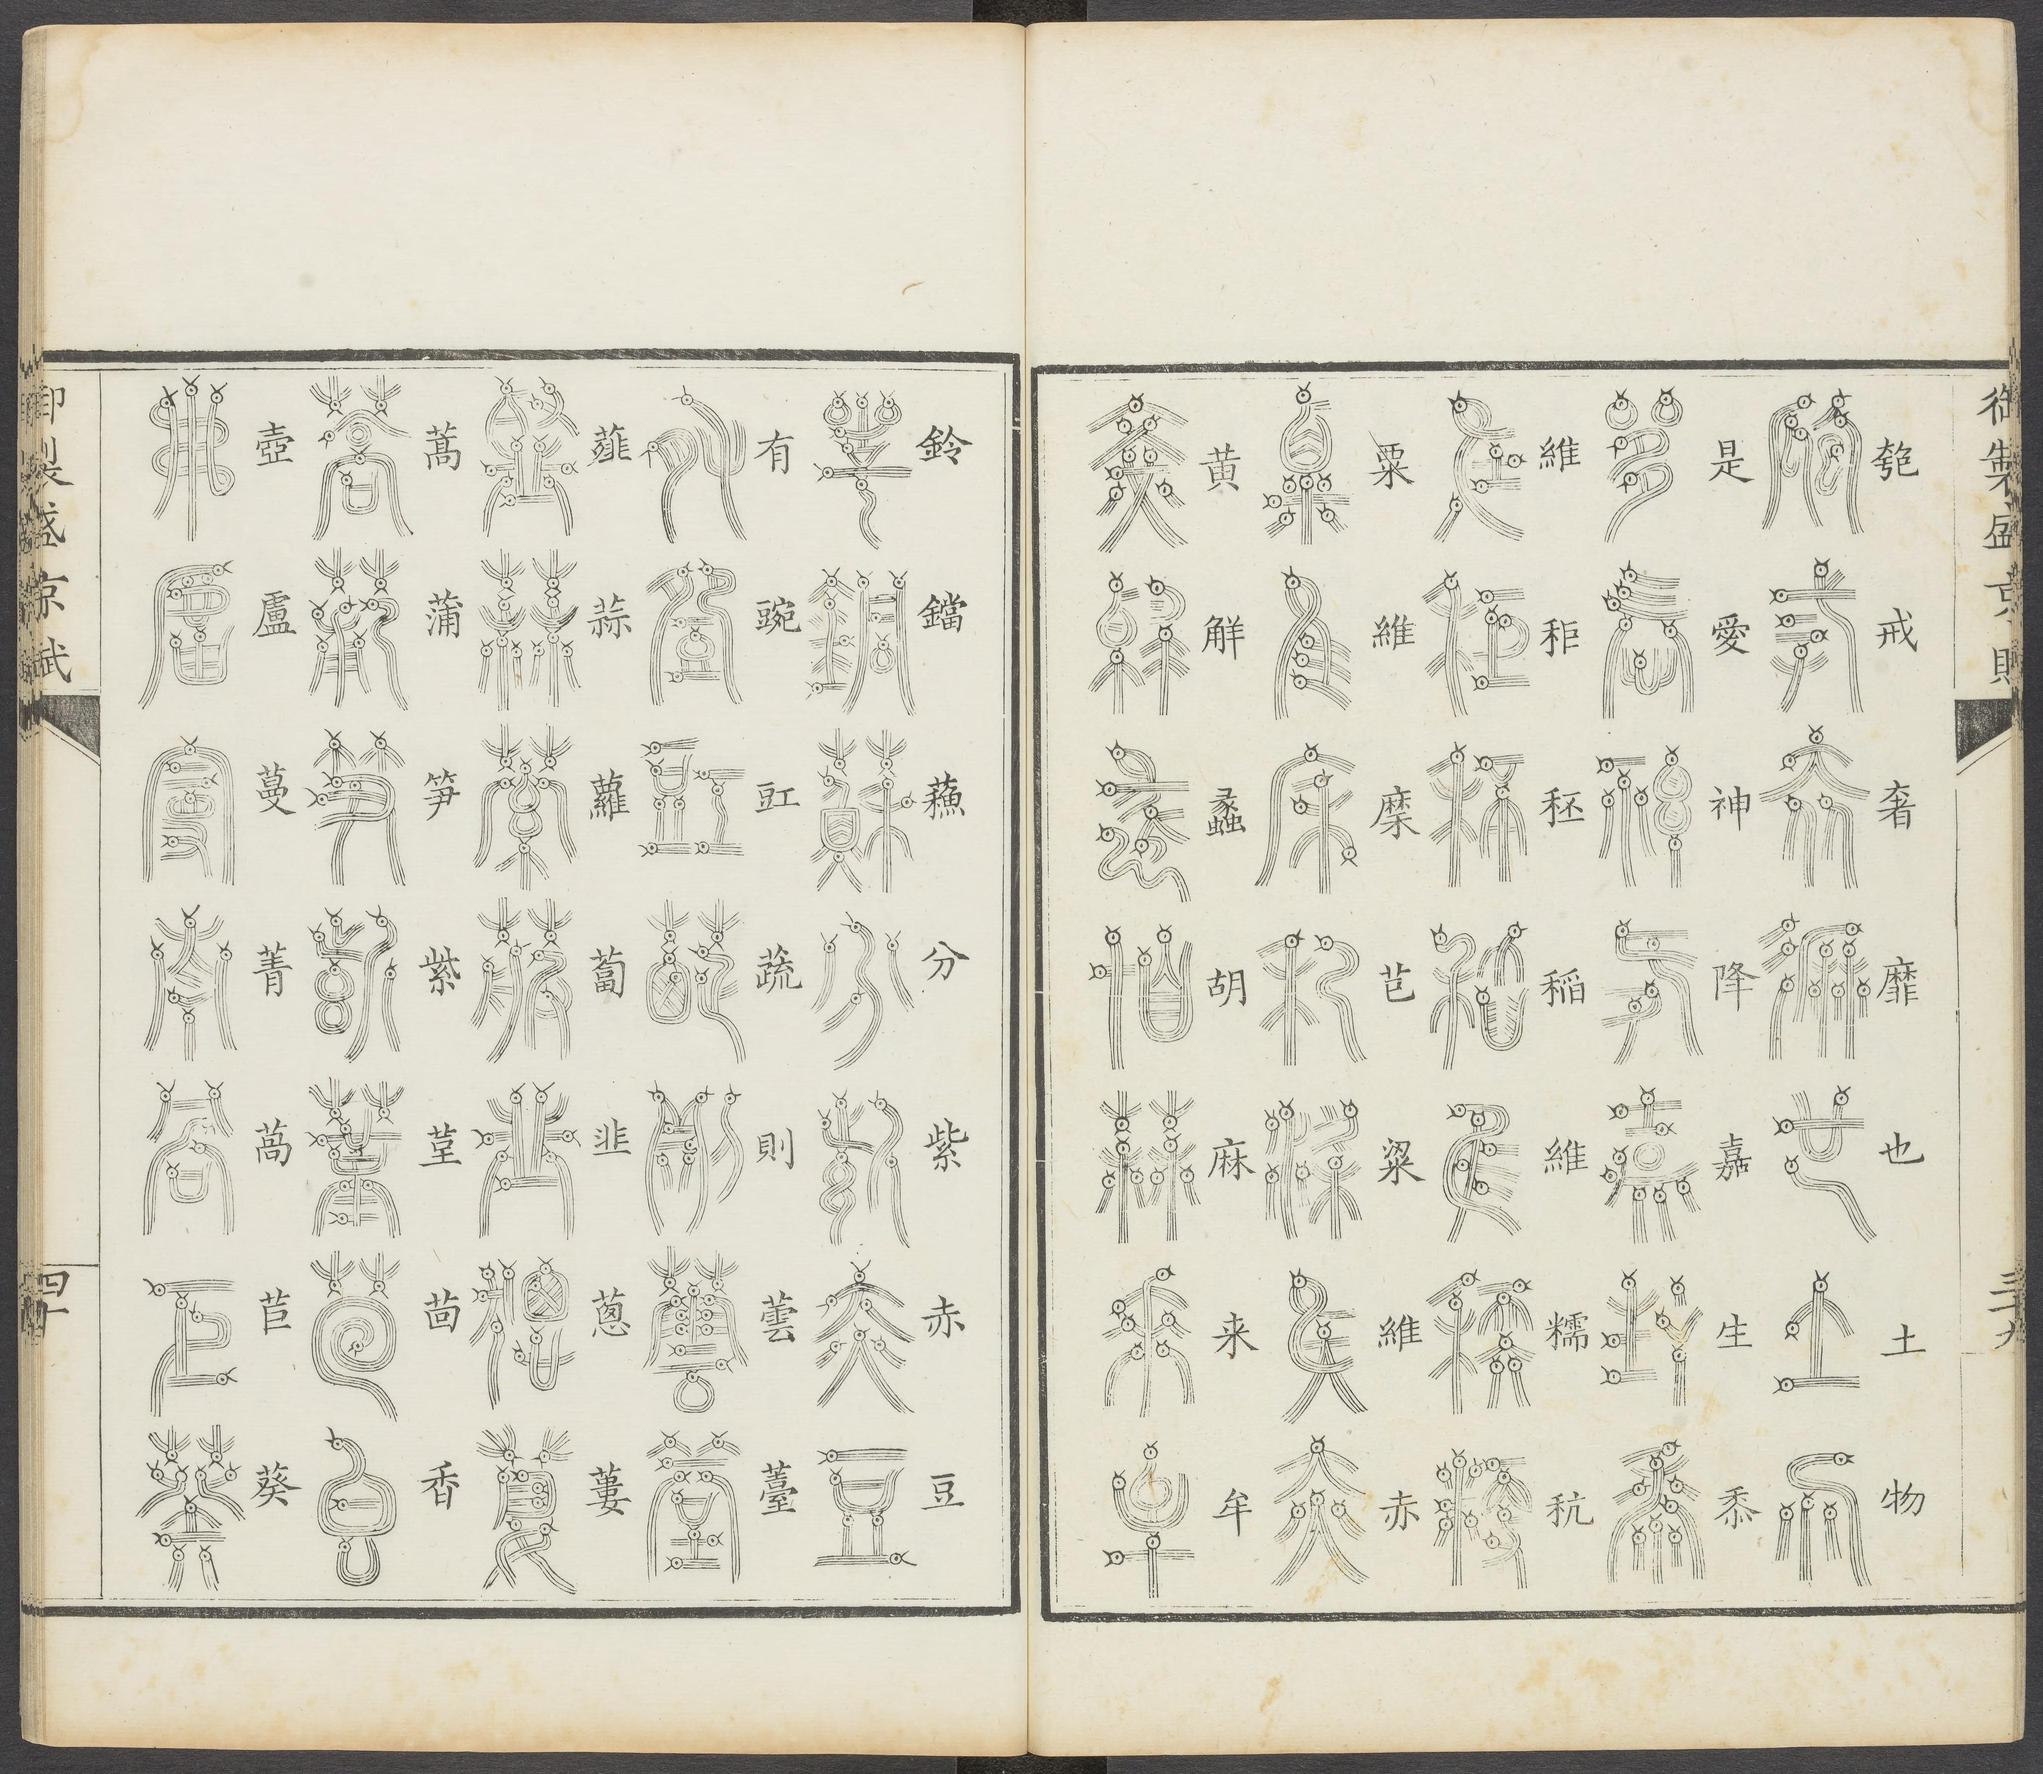 御製盛京賦
匏戒奢靡也土物
是愛神降嘉生黍
維秬秠稻維糯秔
粟維穈芑粱維赤
黄解蠡胡麻来牟
三十九
鈴鐺蘓分紫赤豆
有豌豇蔬則蕓薹
薤蒜蘿蔔韭蔥蔞
蒿蒲笋紫堇茴香
壺盧蔓菁萵苣葵
御製盛京賦
四十